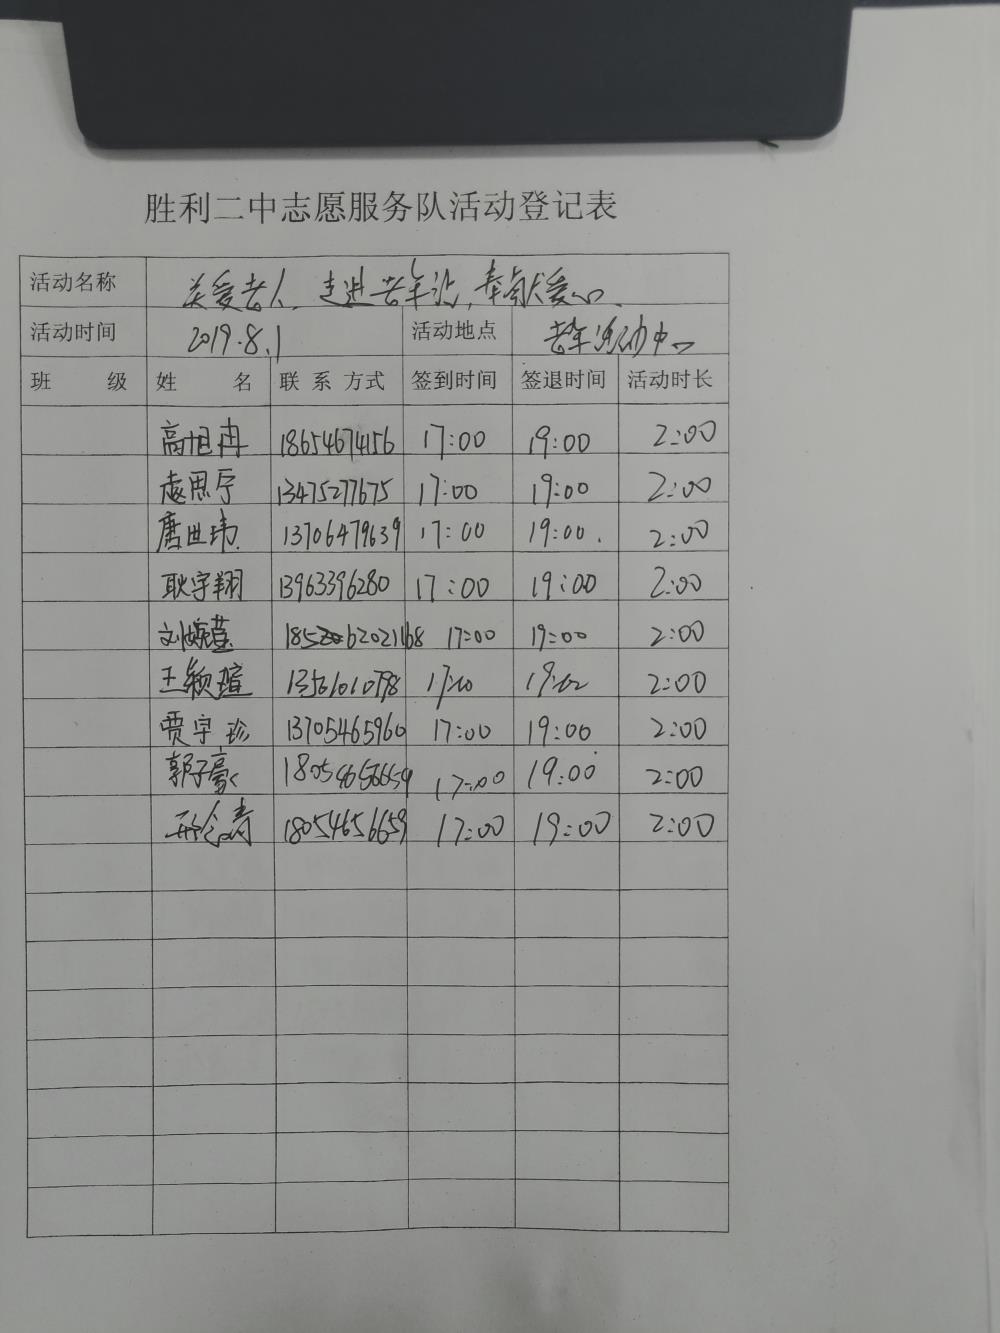 胜利二中志愿服务队活动登记表
活动名称 关爱老人、走进老年活,奉献爱心.
活动时间 2019.8.1 活动地点 老年活动中心
班 级 姓 名 联 系 方式 签到时间 签退时间 活动时长
高旭冉 18654674156 17:00 19:00 2:00
赵思宁 13475277675 17:00 19:00 2:00
唐世玮 13706479639 17:00 19:00 2:00
耿宇翔 13963396280 17:00 19:00 2:00
刘婉莹 17:00 19:00 2:00
王颖瑄 2:00
贾宇珍 13705465960 17:00 19:00 2:00
郭子豪 18054656659 17:00 19:00 2:00
邢念青 18054656659 17:00 19:00 2:00